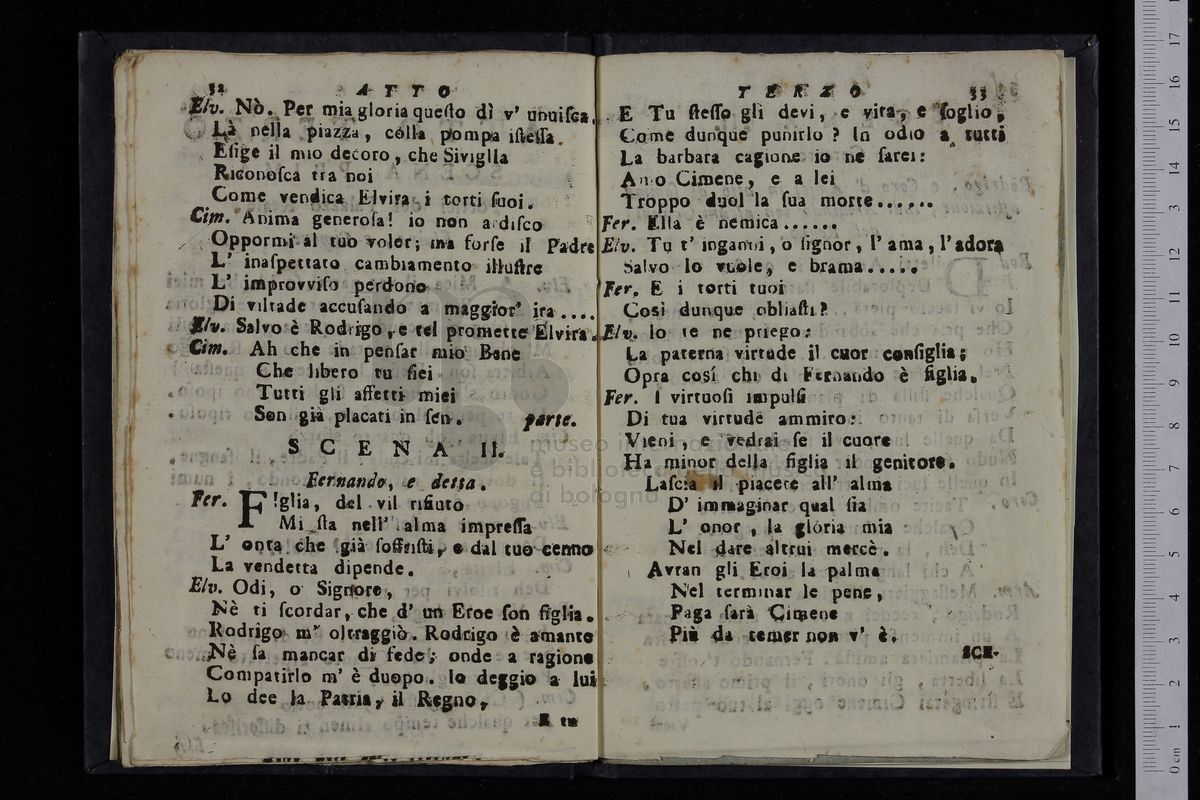 32 ATTO
Elv. Nò. Per mia gloria queſto dì v' unuiſca.
Là nella piazza, colla pompa iſteſſa.
Eſige il mio decoro, che Siviglla
Riconoſca tra noi
Come vendica Elvira i torti ſuoi.
Cim. Anima generoſa! io non ardiſco
Oppormi al tuo voler; ma forſe il Padre
L' inaſpettato cambiamento illuſtre
L' improvviſo perdono
Di viltade accuſando a maggior' ira ....
Elv. Salvo è Rodrigo, e tel promette Elvira.
Cim. Ah che in penſar mio Bene
Che libero tu ſiei
Tutti gli affetti miei
Son già placati in ſen. parte.
SCENA II.
Fernando, e detta.
Fer. F!glia, del vil rifiuto
Mi ſta nell' alma impreſſa
L' onta che già ſoffriſti, e dal tuo cenno
La vendetta dipende.
Elv. Odi, o Signore,
Nè ti ſcordar, che d' un Eroe ſon figlia.
Rodrigo m' oltraggiò. Rodrigo è amante
Nè ſa mancar di fede; onde a ragione
Compatirlo m' è duopo. Io deggio a lui
Lo dee la Patria, il Regno,
E tu
TERZO 33
E Tu ſteſſo gli devi, e vita, e ſoglio;
Come dunque punirlo? In odio a tutti
La barbara cagione io ne ſarei:
Amo Cimene, e a lei
Troppo duol la ſua morte......
Fer. Ella è nemica......
Elv. Tu t' inganni, o ſignor, l' ama, l'adora
Salvo lo vuole, e brama.....
Fer. E i torti tuoi
Così dunque obliaſti?
Elv. Io te ne priego:
La paterna virtude il cuor conſiglia;
Opra così chi di Fernando è figlia.
Fer. I virtuoſi impulſi
Di tua virtude ammiro:
Vieni, e vedrai ſe il cuore
Ha minor della figlia il genitore.
Laſcia il piacere all' alma
D' immaginar qual ſia
L' onor, la glória mia
Nel dare altrui mercè.
Avran gli Eroi la palma
Nel terminar le pene,
Paga ſarà Cimene
Più da temer non v' è.
SCE-
museo
e biblioteca
di bologna
0 cm 1 2 3 4 5 6 7 8 9 10 11 12 13 14 15 16 17